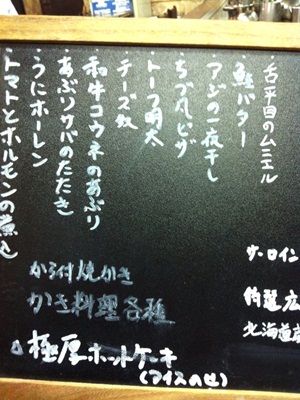 舌平目のムニエル
鮭バター
アジの一夜干し
ちづ丸ピザ
トーフ明太
チーズ奴
和牛コウネのあぶり
あぶりサバのたたき
うにホーレン
トマトとホルモンの煮込
ザ・ロイン
特選広
北海道
から付焼かき
かき料理各種
極厚ホットケーキ
(アイスのせ)